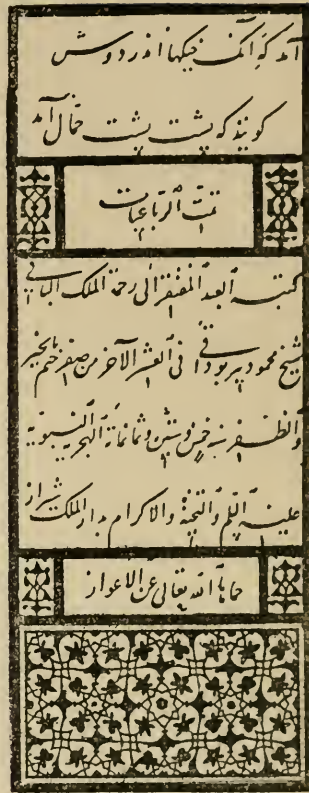 آمد که آنک خیکها اندر دوش
کویند که پشت پشت خمال آمد
تمت الرباعیات
کتبه العبد المفتقر الی رحمة الملک الباقی
شیخ محمود پیربوداقی فی العشر الآخر من صفر ختم بالخیر
والظفر سنه خمس وستین وثمانمائة الهجریة النبویة
علیه السلم والتحیة والاکرام بدار الملک شیراز
حماها الله تعالی عن الاعواز